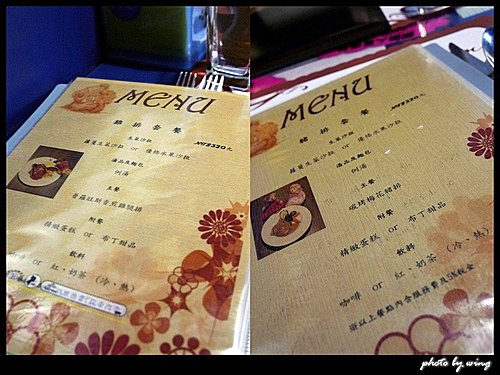 MENU
雞排套餐
NT$320元
生菜沙拉
蘿蔓生菜沙拉 or 優格水果沙拉
湯品及麵包
例湯
主餐
香蘿旺斯香煎雞腿排
附餐
精緻蛋糕 or 布丁甜品
飲料
咖啡 or 紅、奶茶 (冷、熱)
MENU
豬排套餐
NT$320元
生菜沙拉
蘿蔓生菜沙拉 or 優格水果沙拉
湯品及麵包
例湯
主餐
碳烤梅花豬排
附餐
精緻蛋糕 or 布丁甜品
飲料
咖啡 or 紅、奶茶 (冷、熱)
photo by wing